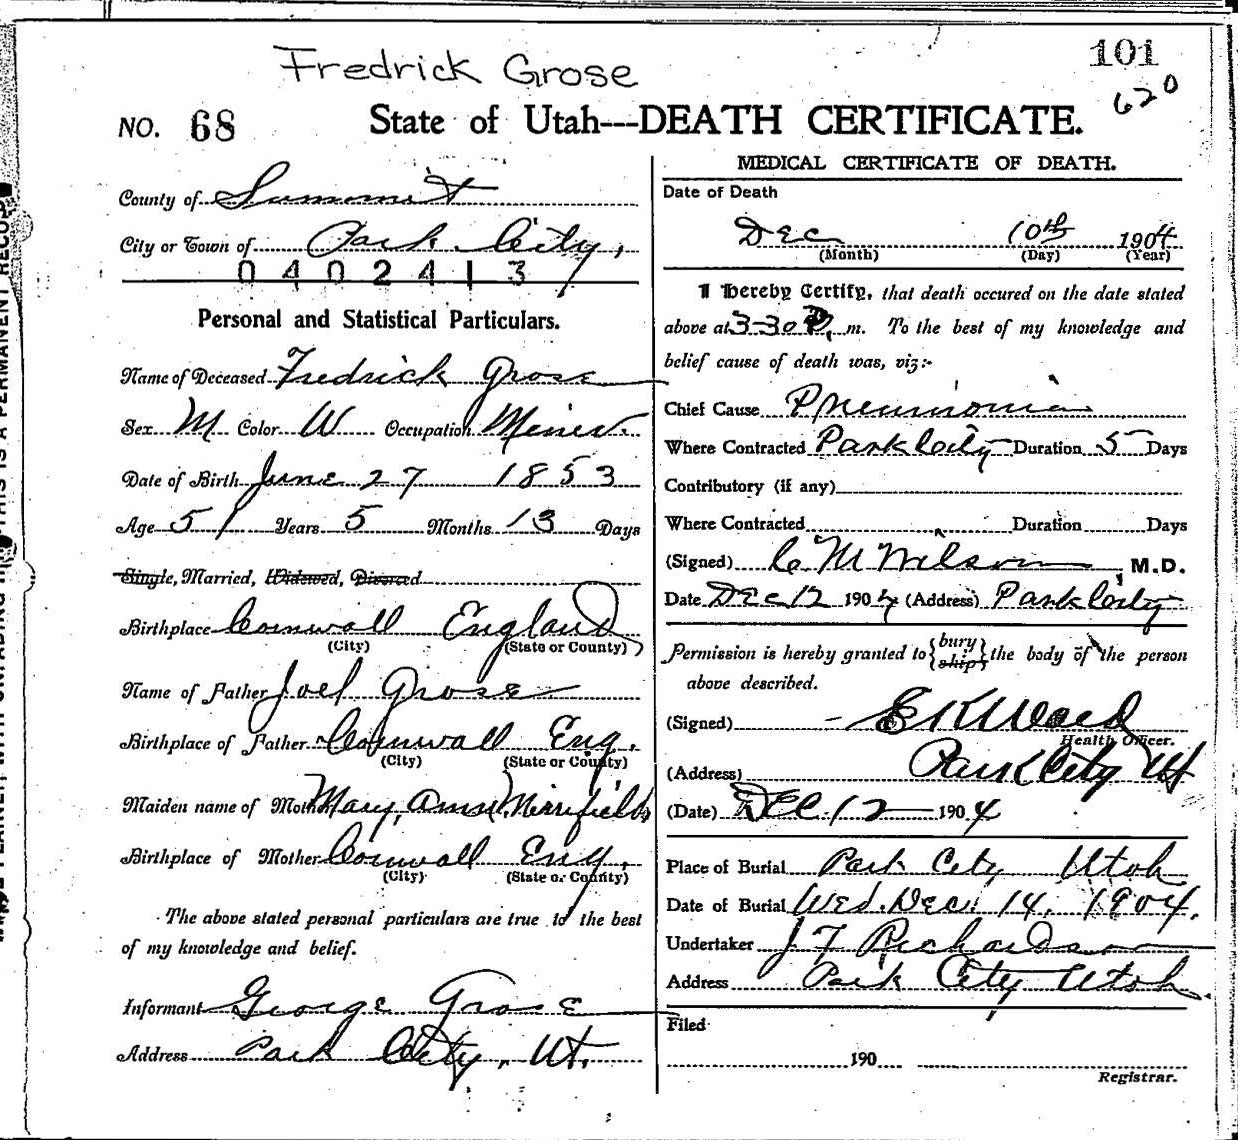 Fredrick Grose
101
620
NO. 68
State of Utah---DEATH CERTIFICATE.
County of Summit
City or Town of Park City,
0402413
Personal and Statistical Particulars.
Name of Deceased Fredrick Grose
Sex M Color W Occupation Miner.
Date of Birth June 27 1853
Age 51 Years 5 Months 13 Days
Single, Married, Widowed, Divorced
Birthplace Cornwall England
(City) (State or County)
Name of Father Joel Grose
Birthplace of Father Cornwall Eng.
(City) (State or County)
Maiden name of Mother Mary, Ann Mirrifield
Birthplace of Mother Cornwall Eng.
(City) (State or County)
The above stated personal particulars are true to the best
of my knowledge and belief.
Informant George Grose
Address Park City, Ut.
MEDICAL CERTIFICATE OF DEATH.
Date of Death
Dec 10th 1904
(Month) (Day) (Year)
I hereby Certify, that death occured on the date stated
above at 3-30 P, m. To the best of my knowledge and
belief cause of death was, viz:-
Chief Cause Pneumonia
Where Contracted Park City Duration 5 Days
Contributory (if any)
Where Contracted Duration Days
(Signed) C M Wilson M.D.
Date Dec 12 1904 (Address) Park City
Permission is hereby granted to {bury
ship} the body of the person
above described.
(Signed) E K Ward
Health Officer.
(Address) Park City Ut
(Date) Dec. 12 1904
Place of Burial Park City Utah
Date of Burial Wed. Dec. 14, 1904.
Undertaker J T Richardson
Address Park City Utah.
Filed
190
Registrar.